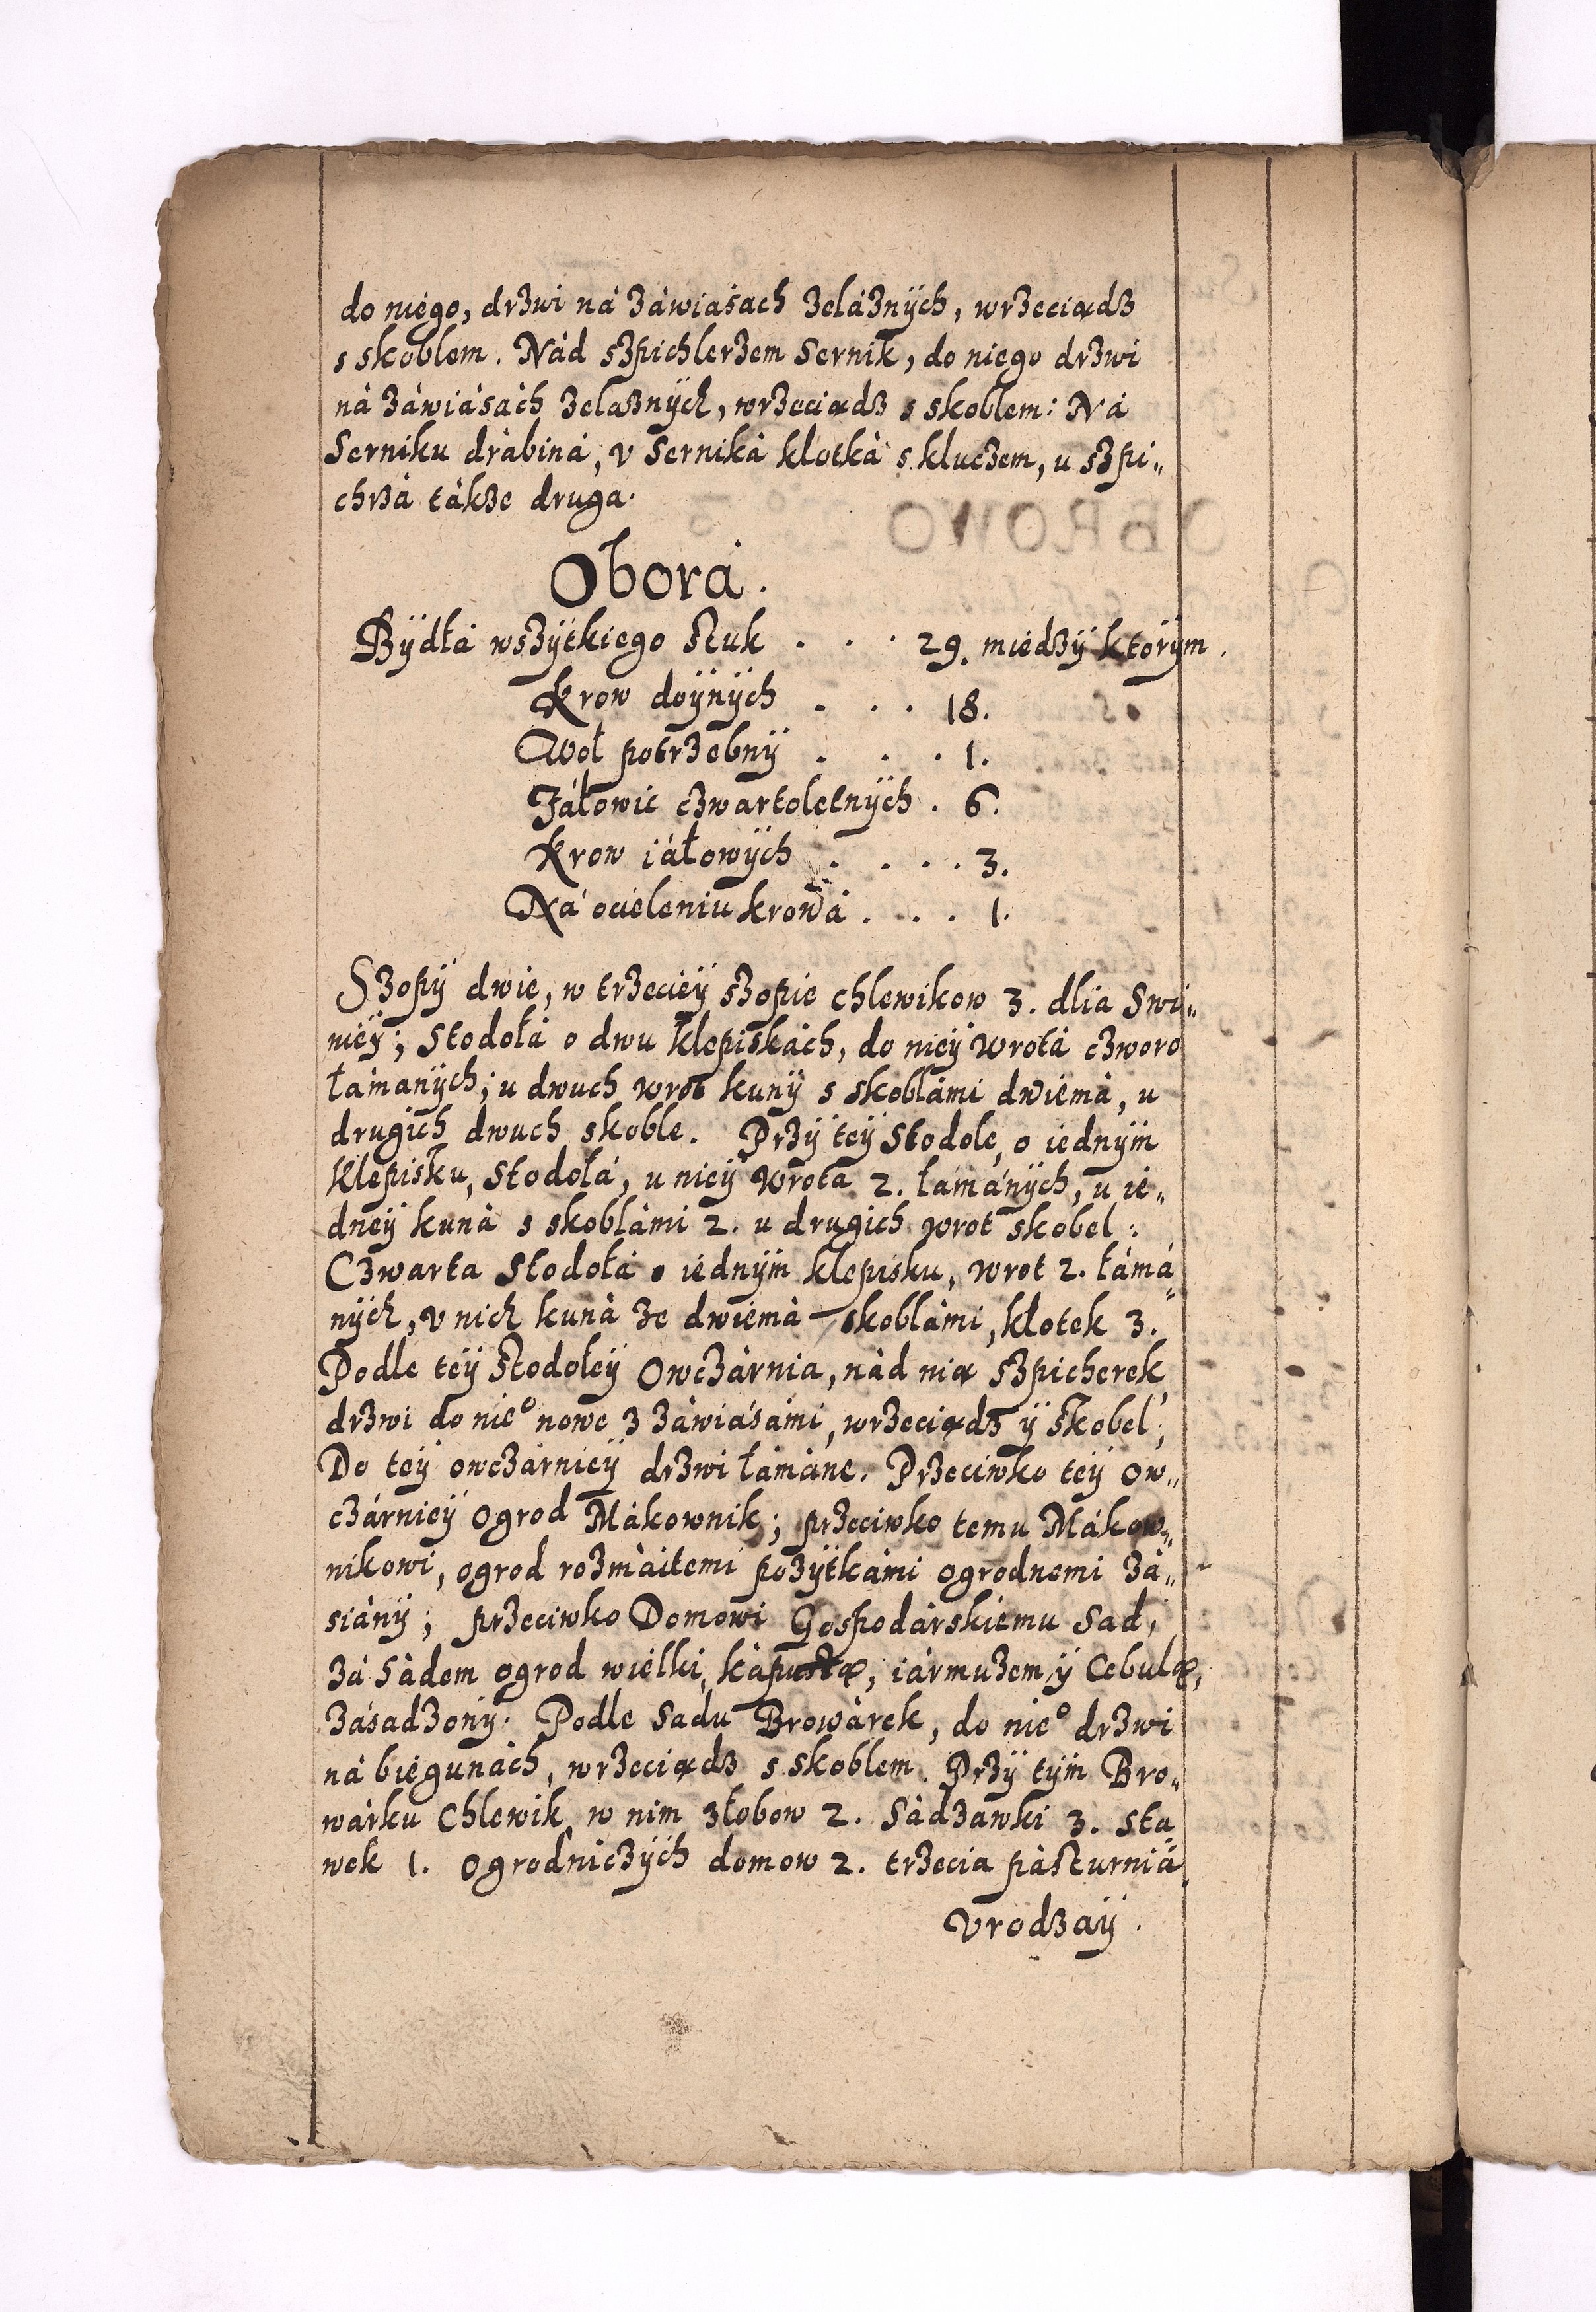 do niego, drzwi ná záwiásach zelàznÿch, wrzeciądz
s skoblem. Nàd szpichlerzem Sernik, do niego drzwi
nà záwiásàch zelaznÿch, wrzeciądz s skoblem: Nà
Serniku dràbinà, v Sernikà klotkà s kluczem, u szpi„
chrzà tàkze druga.
Obora.
Bÿdłà wszÿtkiego sztuk . . . 29. miedzÿ ktorÿm.
Krow doÿnÿch . . . 18.
Woł potrzebnÿ . . . 1.
Jáłowic czwartoletnÿch . 6.
Krow iáłowÿch . . . . 3.
Ná ocieleniu krowà . . . 1.
Szopÿ dwie, w trzecieÿ szopie chlewikow 3. dlia Swi„
nieÿ; Stodołà o dwu klepiskàch, do nieÿ wrotà czworo
łàmanÿch; u dwuch wrot kunÿ s skoblàmi dwiemà, u
drugich dwuch skoble. Przÿ teÿ Stodole, o iednÿm
klepisku, Stodołá, u nieÿ wrota 2. łamánÿch, u ie„
dneÿ kunà s skoblàmi 2. u drugich wrot skobel:
Czwarta Stodołà o iednÿm klepisku, wrot 2. łámá„
nÿch, v nich kunà ze dwiemà skoblàmi, kłotek 3.
Podle teÿ stodołeÿ Owczàrnia, nàd nią szpicherek,
drzwi do nie° nowe z záwiásámi, wrzeciądz ÿ skobel;
Do teÿ owczàrnieÿ drzwi łàmàne. Przeciwko teÿ ow„
czárnieÿ ogrod Màkownik; przeciwko temu Màkow„
nikowi, ogrod rozmàitemi pozÿtkàmi ogrodnemi zà„
siànÿ; przeciwko Domowi Gospodàrskiemu Sad,
zà Sàdem ogrod wielki, kàpustą, iármuzem ÿ Cebulą,
zásadzonÿ. Podle Sadu Browàrek, do nie° drzwi
nà biegunàch, wrzeciądz s skoblem. Przÿ tÿm Bro„
wàrku Chlewik, w nim złobow 2. Sàdzawki 3. sta„
wek 1. ogrodniczÿch domow 2. trzecia pàsturnià.
Vrodzaÿ.